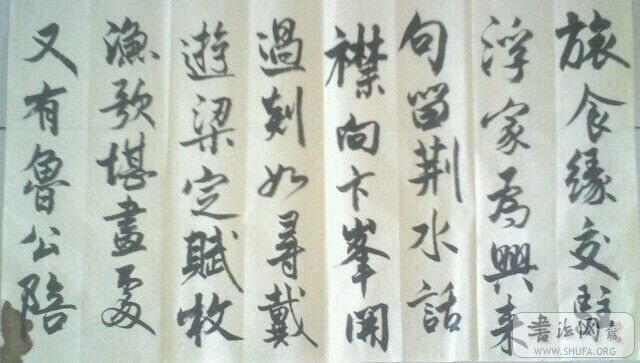 旅食緣交駐
浮家為興来
句留荆水話
襟向卞峯開
過剡如尋戴
遊梁定賦枚
漁歌堪畫處
又有魯公陪
書法网
WWW.SHUFA.ORG